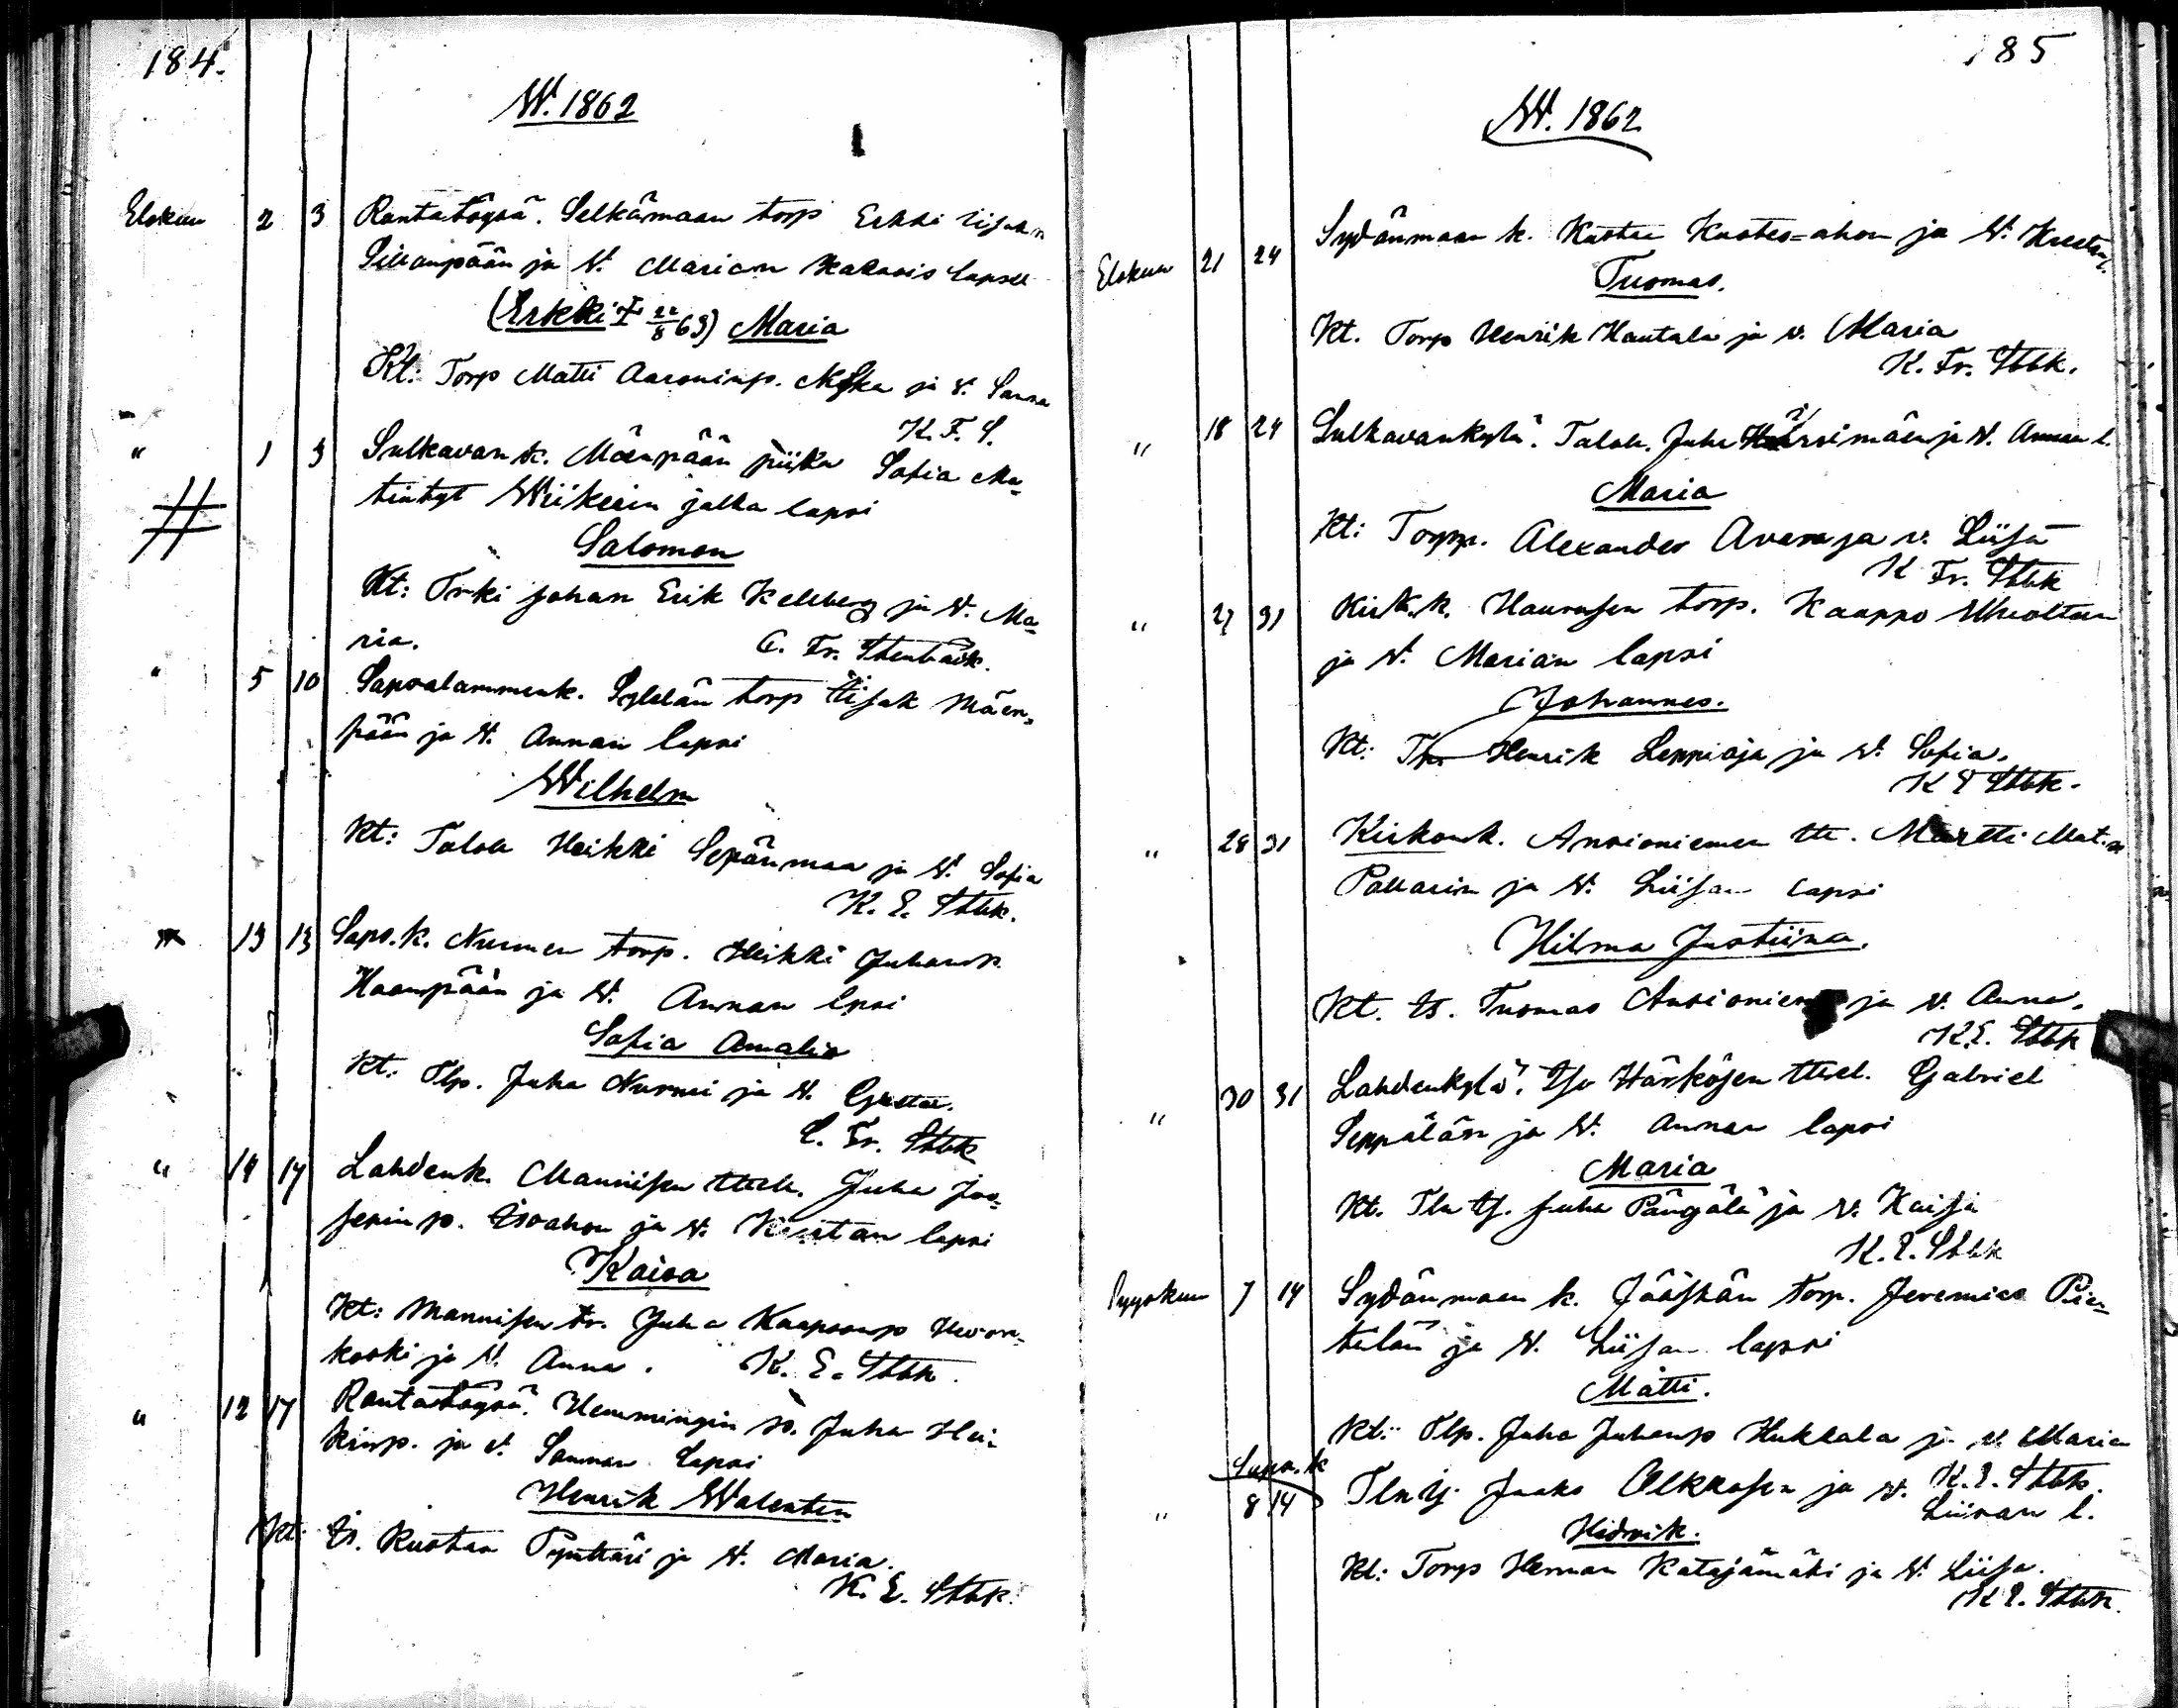 184.
W. 1862
Elokuu 2 3 Rantatöysä. Selkämaan torp Erkki Iisakn
Siikanpään ja V. Marian kaksois lapset
(Erkki † 22/8 63) Maria
Kt: Torp Matti Aaroninp. ja V. Sanna
K. F. S.
" 1 3 Sulkavan k. Mäenpään piika Sofia Ma-
tintyt Wiikerin jalka lapsi
Salomon
Kt: Trki Johan Erik Kellberg ja V. Ma-
ria. C. Fr. Stenbäck.
" 5 10 Sapsalammenk. torp Iisak Mäen-
pään ja V. Annan lapsi
Wilhelm
Kt: Talok Heikki Sepänmaa ja V. Sofia
K. E. Stbk.
" 13 13 Saps. k. Nurmen torp. Heikki Juhanp.
Haanpään ja V. Annan lpsi
Sofia Amalia
Kt: Tlp. Juha Nurmi ja V. Greta.
C. Fr. Stbk
" 14 17 Lahdenk. Mannisen Juha Joo-
sepin p. Isoahon ja V. lapsi
Kaisa
Kt: Mannisen tr. Juha Kaaponp
koski ja V. Anna. K. E. Stbk.
" 12 17 Rantatöysä. Hemmingin p. Juha Hei-
kinp. ja V. Sannan lapsi
Henrik Walentin
Kt: Is. Kustaa Pynttäri ja V. Maria.
K. E. Stbk.
185
W. 1862
Elokuu 21 24 Sydänmaan k. Kustaa Kustes=ahon ja V. Kreetan l.
Tuomas.
Kt. Torp Henrik Hautala ja V. Maria
K. Fr. Stbk.
" 18 24 Sulkavankylä. Talok. Juha ja V. Annan l.
Maria
Kt: Torpp. Alexander ja V. Liisa
K Fr. Stbk
" 27 31 Kirk. k. torp. Kaappo
ja V. Marian lapsi
Johannes.
Kt: Henrik Leppiaja ja V. Sofia.
K E Stbk.
" 28 31 Kirkonk. Ansioniemen Martti Mat.p
ja V. Liisan lapsi
Hilma Justiina.
Kt. Is. Tuomas Ansioniemi ja V. Anna.
K. E. Stbk
" 30 31 Lahdenkylä. Härkösen Gabriel
Seppälän ja V. Annan lapsi
Maria
Kt. Juha Pängälä ja V. Kaisa
K. E. Stbk
Syyskuu 7 14 Sydänmaan k. Jääskän torp. Jeremias Pien-
tilän ja V. Liisan lapsi
Matti.
Kt: Tlp. Juha Juhanp Hukkala ja V. Maria
K. E. Stbk.
Saps. k
" 8 14 Jaako Olkkosen ja V. Liisan l.
Hedvik.
Kt: Torp Herman Katajamäki ja V. Liisa.
K E. Stbk.